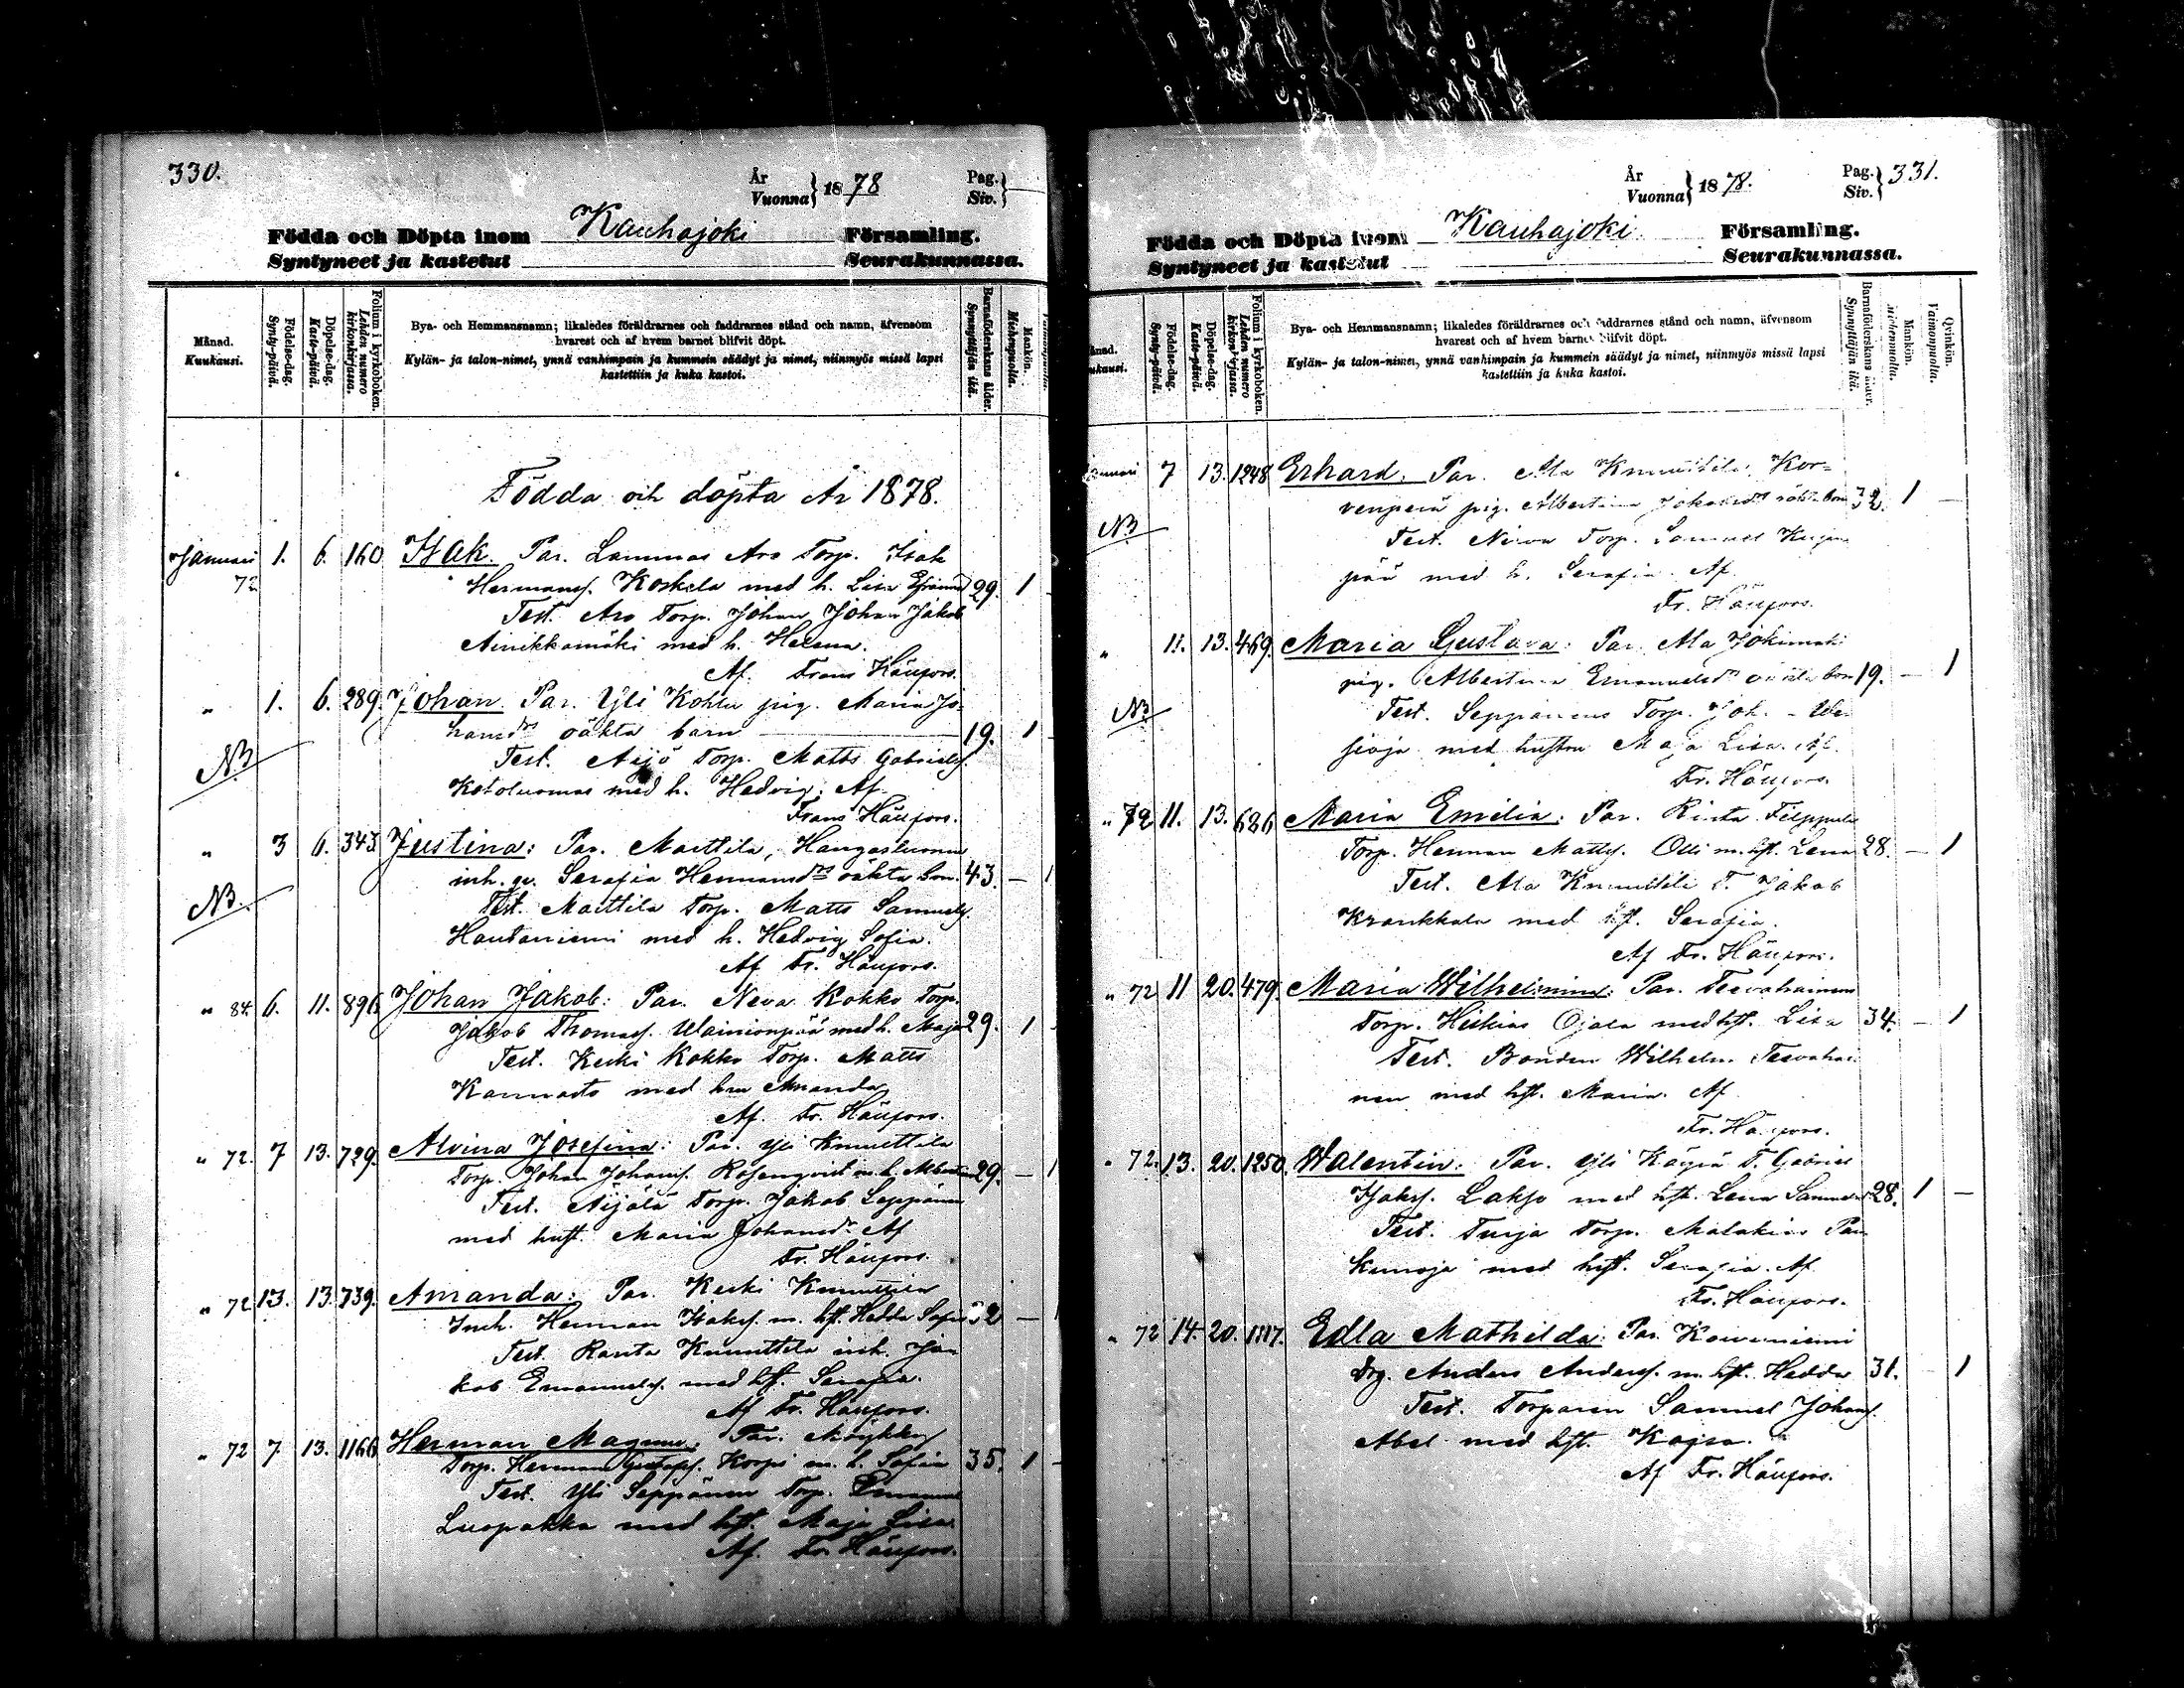 330.
År
Vuonna } 1878
Pag.
Siv. }
Födda och Döpta inom Kauhajoki Församling.
Syntyneet ja kastetut Seurakunnassa.
Månad.
Kuukausi.
Födelse-dag.
Synty-päivä.
Döpelse-dag.
Kaste-päivä.
Folium i kyrkoboken.
Lehden numero kirkonkirjassa.
Bya- och Hemmansnamn; likaledes föräldrarnes och faddrarnes stånd och namn, äfvensom
hvarest och af hvem barnet blifvit döpt.
Kylän- ja talon-nimet, ynnä vanhimpain ja kummein säädyt ja nimet, niinmyös missä lapsi
kastettiin ja kuka kastoi.
Barnaföderskans ålder.
Synnyttäjän ikä.
Mankön.
Miehenpuolia.
Födda och döpta År 1878.
Januari 1. 6. 160 Isak. Par. Lammas Aro Torp. Isak
72 Hermanss. Koskela med h. Lisa 29. 1
Test. Aro Torp. Johan Johan Jakob
med h. Helena.
Af. Frans Häufors.
" 1. 6. 289. Johan Par. Yli Kohlu pig. Maria Jo-
hansdr oäkta barn 19. 1
NB
Test. Äijö Torp. Matts Gabrielss.
Kotoluomas med h. Hedvig. Af.
Frans Häufors.
" 3 6. 343. Justina: Par. Marttila, Hangasluoma
inh. qv. Serafia Hermansdrs oäkta barn. 43. — 1
NB.
Test. Marttila Torp. Matts Samuelss.
Hautaniemi med h. Hedvig Sofia.
Af Fr. Häufors.
" 84. 6. 11. 896. Johan Jakob: Par. Neva Kokko Torp.
Jakob Thomass. Wainionpää med h. Maja 29. 1
Test. Keski Kokko Torp. Matts
Kannasto med hu Amanda
Af. Fr. Häufors.
" 72. 7 13. 729. Alvina Josefina: Par. Yli Knuuttila
Torp. Johan Johanss. Rosenqvist m. h. Albertina 29. — 1
Test. Äijälä Torp. Jakob Leppänen
med hust. Maria Johansdr. Af
Fr. Häufors.
" 72 13. 13. 739. Amanda: Par. Keski Knuuttila
Inh. Herman Isakss. m. hst. Hedda Sofia 32 — 1
Test. Ranta Knuuttila inh. Ja-
kob Emanuelss. med hst. Serafia.
Af Fr. Häufors.
" 72 7 13. 1166 Herman Magnus: Par. Möykky
Torp. Herman Gustafss. Korpi m. h. Sofia 35. 1
Test. Yli Seppänen Torp. Emanuel
Luopakka med hst. Maja Lisa
Af. Fr. Häufors.
År
Vuonna } 1878.
Pag.
Siv. } 331.
Födda och Döpta inom Kauhajoki Församling.
Syntyneet ja kastetut Seurakunnassa.
Födelse-dag.
Synty-päivä.
Döpelse-dag.
Kaste-päivä.
Folium i kyrkoboken.
Lehden numero kirkonkirjassa.
Bya- och Hemmansnamn; likaledes föräldrarnes och faddrarnes stånd och namn, äfvensom
hvarest och af hvem barnet blifvit döpt.
Kylän- ja talon-nimet, ynnä vanhimpain ja kummein säädyt ja nimet, niinmyös missä lapsi
kastettiin ja kuka kastoi.
Barnaföderskans ålder.
Synnyttäjän ikä.
Mankön.
Miehenpuolia.
Qvinkön.
Vaimonpuolia.
Januari 7 13. 1248 Erhard. Par. Ala Knuuttila, Kor-
venperä pig. Albertina oäkta barn 32. 1 —
NB
Test. Neva Torp. Samuel
pää med h. Serafia. Af.
Fr. Häufors.
" 11. 13. 469. Maria Gustava: Par. Ala Jokimäki
pig. Albertina Emanuelsdr oäkta barn 19. — 1
NB
Test. Seppänens Torp. Joh.
med hustru Maja Lisa. Af.
Fr. Häufors.
" 72 11. 13. 686 Maria Emilia: Par. Rinta Filppula
Torp. Herman Mattss. Olli m. hst. Lena 28. — 1
Test. Ala Knuuttila T. Jakob
Krankkala med hst. Serafia.
Af Fr. Häufors.
" 72 11 20. 479. Maria Wilhelmina: Par. Teevahainen
Torp. Hiskias Ojala med hst. Lisa 34. — 1
Test. Bonden Wilhelm Teevahai-
nen med hst. Maria. Af
Fr. Häufors.
" 72. 13. 20. 1250. Walentin: Par. Yli Käyrä T. Gabriel
Isakss. Lakso med hst. Lena 28. 1 —
Test. Turja Torp. Malakias Pan-
med hst. Serafia. Af
Fr. Häufors.
" 72 14. 20. 1117. Edla Mathilda: Par. Koivuniemi
Drg. Anders Anderss. m. hst. Hedda 31. — 1
Test. Torparen Samuel Johanss.
Abel med hst. Kajsa.
Af Fr. Häufors.